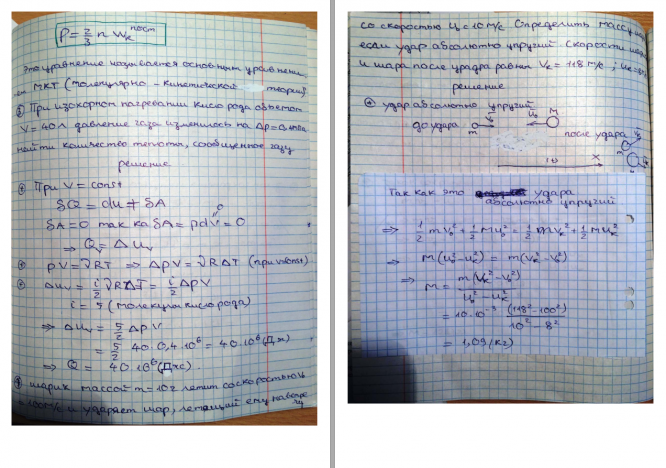 P = 2/3 n W_k^пост
Это уравнение называется основным уравнени
ем МКТ (молекулярно - кинетической теории)
При изохорном нагревании кислорода объемом
V = 40 л давление газа изменилось на Δp =
найти количество теплоты, сообщенное газу
решение
При V = const
δQ = du + δA
δA = 0 так ка δA = pdV = 0
⇒ Q = ΔU_V
pV = νRT ⇒ ΔpV = νRΔT (при V=const)
ΔU_V = i/2 νRΔT = i/2 ΔpV
i = 5 (молекулы кислорода)
⇒ ΔU_V = 5/2 ΔpV
= 5/2 40·0,4·10⁶ = 40·10⁶ (Дж)
⇒ Q = 40·10⁶ (Дж).
шарик массой m = 10г летит со скоростью
100м/с и ударяет шар, летящий ему навстре
чу
со скоростью U₀ = 10 м/с. Определить массу
если удар абсолютно упругий. Скорости
и шара после удара равны V_k = 118 м/с ;
решение
удар абсолютно упругий
до удара m V₀ U₀ M
после удара
m
x
Так как это удара
абсолютно упругий
⇒ 1/2 m V₀² + 1/2 M U₀² = 1/2 m V_k² + 1/2 M U_k²
⇒ M(U₀² - U_k²) = m(V_k² - V₀²)
⇒ M = m(V_k² - V₀²) / U₀² - U_k²
= 10·10⁻³ (118² - 100²) / 10² - 8²
= 1,09 (кг)